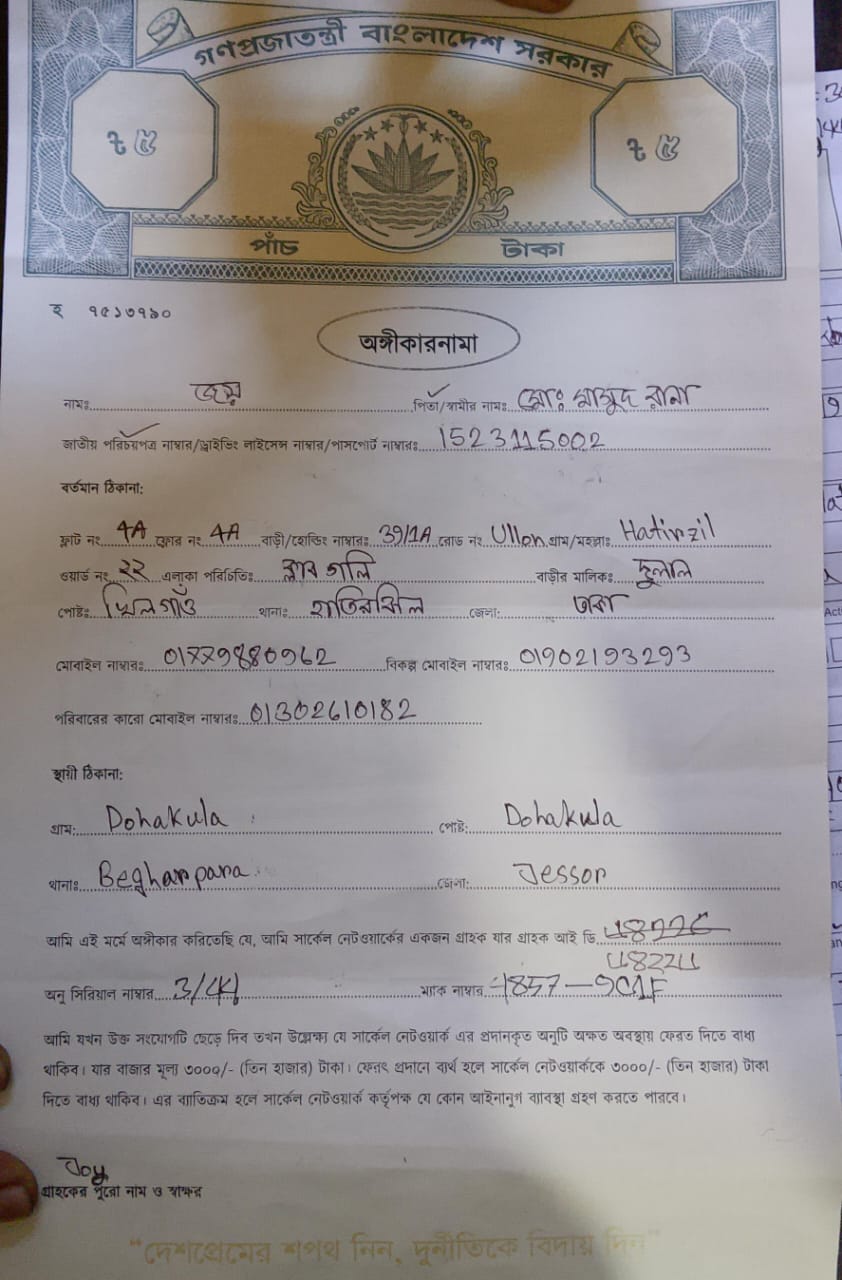 গণপ্রজাতন্ত্রী বাংলাদেশ সরকার
৳ ৫ ৳ ৫
পাঁচ টাকা
হ ৭৫১৩৭৯০
অঙ্গীকারনামা
নামঃ জয় পিতা/স্বামীর নামঃ মোঃ মাসুদ রানা
জাতীয় পরিচয়পত্র নাম্বার/ড্রাইভিং লাইসেন্স নাম্বার/পাসপোর্ট নাম্বারঃ 1523115002
বর্তমান ঠিকানা:
ফ্লাট নং 4A ফ্লোর নং 4A বাড়ী/হোল্ডিং নাম্বারঃ 39/1A রোড নং Ullon গ্রাম/মহল্লাঃ Hatirzil
ওয়ার্ড নং ২২ এলাকা পরিচিতিঃ ক্লাব গলি বাড়ীর মালিকঃ দুলাল
পোষ্টঃ খিলগাঁও থানাঃ হাতিরঝিল জেলা: ঢাকা
মোবাইল নাম্বারঃ বিকল্প মোবাইল নাম্বারঃ 01902193293
পরিবারের কারো মোবাইল নাম্বারঃ 01302610182
স্থায়ী ঠিকানা:
গ্রাম: Dohakula পোষ্ট: Dohakula
থানাঃ Begharpara জেলা: Jessor
আমি এই মর্মে অঙ্গীকার করিতেছি যে, আমি সার্কেল নেটওয়ার্কের একজন গ্রাহক যার গ্রাহক আই ডি
অনু সিরিয়াল নাম্বার ম্যাক নাম্বার
আমি যখন উক্ত সংযোগটি ছেড়ে দিব তখন উল্লেক্ষ্য যে সার্কেল নেটওয়ার্ক এর প্রদানকৃত অনুটি অক্ষত অবস্থায় ফেরত দিতে বাধ্য
থাকিব। যার বাজার মূল্য ৩০০০/- (তিন হাজার) টাকা। ফেরৎ প্রদানে ব্যর্থ হলে সার্কেল নেটওয়ার্ককে ৩০০০/- (তিন হাজার) টাকা
দিতে বাধ্য থাকিব। এর ব্যাতিক্রম হলে সার্কেল নেটওয়ার্ক কর্তৃপক্ষ যে কোন আইনানুগ ব্যাবস্থা গ্রহণ করতে পারবে।
Joy
গ্রাহকের পুরো নাম ও স্বাক্ষর
"দেশপ্রেমের শপথ নিন, দুর্নীতিকে বিদায় দিন"